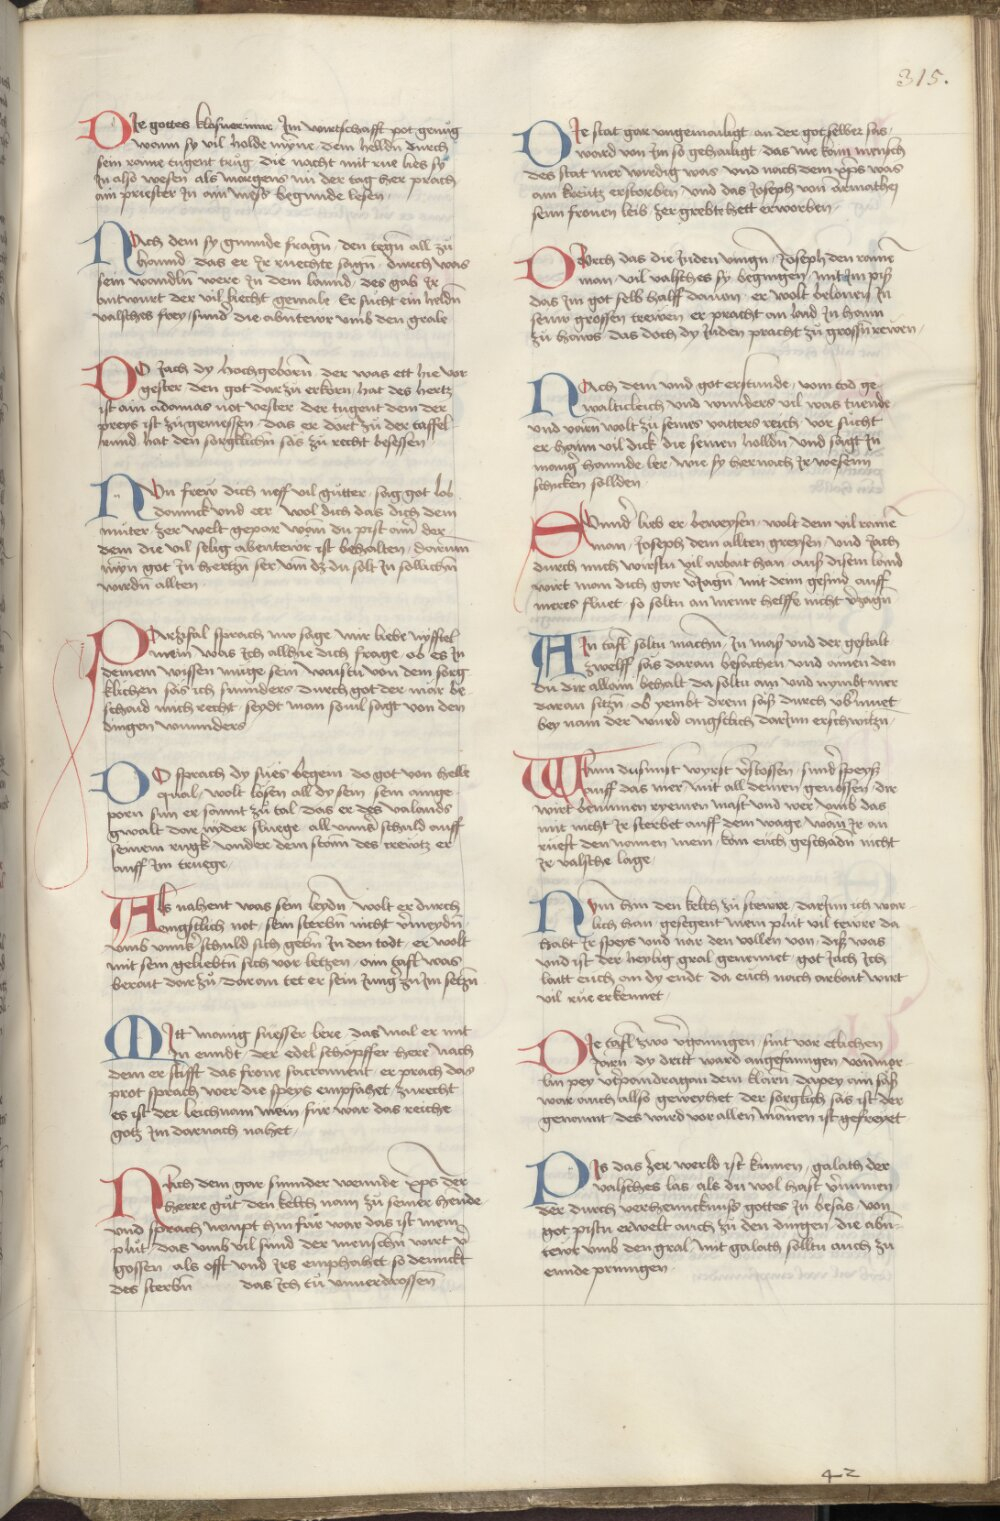 315.
Die gottes klosnerinne Im wirtschafft pot genug
wann sy vil holde mynne dem helldn durch
sein raine tugent trug die nacht mit rue lies sy
In also wesen als morgens nu der tag her prach
ain priester In ain mess begunde lesen
Nach dem sy gunnde fragn den tegn all zu
hannd das er Ir ruechte sagn durch was
sein wandln were In dem lannd des gab Ir
antwurt der vil liecht gemale Er sucht ein heldn
valsches frey sund die abntewr umb den grale
Do Jach dy hochgeborn der was ett hie vor
gester den got dar zu erkorn hat des hertz
ist ain adamas not vester der tugent dem der
preys ist zugemessen das er dort zu der taffel
rund hat den sorgklichn sas zu recht besessen
Nun frew dich neff vil gutter sag got lob
dannck und eer wol dich das dich dein
muter zer welt gepar wann du pist ainr der
dem die vil selig abentewr ist behalten darumb
mynn got In hertzn ser umb dz du solt In sollichn
wirdn allten
Partzifal sprach nw sage mir liebe nyfftel
mein was Ich allhie dich frage ob es In
deinem wissen muge sein waistu von dem sorg
klichen sas ich sunnders durch got der mär be
schaid mich recht seydt man sovil sagt von den
dingen wunnders
Do sprach dy sues begein do got von helle
qual wolt losen all dy sein sein ainge
porn sun er sannt zu tal das er des valands
gwalt dar nyder sluege all unns schuld auff
seinem rugk under dem stam des crewtz er
auff Im truege
Als nahent was sein leydn wolt er durch
angstlich not sein sterbn nicht vermeydn
umb unns schuld sich gebn In den todt er wolt
mit sein geliebtn sich vor letzen ain tafl was
berait dar zu daran tet er sein Jungr zu Im setzn
Mitt manig suesser lere das mal er mit
In ennedt der edel schopffer here nach
dem er stifft das frone sacrament er prach das
prot sprach wer die speys empfahet zurecht
es ist der leichnam mein fur war das reiche
gotz Im darnach nahet
Nach dem gar sunnder wennde xps der
herre gut den kelch nam zu seiner hende
und sprach nempt hin fur war das ist mein
plut das umb vil sund der menschn wirt v
gossen als offt und Irs emphahet so dennckt
des sterbn das Ich tu unverdrossen
Die stat gar ungemailigt an der got selber sas
ward von Im so gehailigt das nie kain mensch
des stat mer wirdig was und nach dem xps was
am kreutz erstorben und das Joseph von armathey
sein fronen leib zer grebte hett erworben
Durch das die Juden viengn Joseph den raine
man vil valsches sy begingen mit Im pis
das Im got selb halff davon er wolt belonen In
seinr grossen trewen er pracht an laid In haim
zu haws das doch dy Juden pracht zu grossn rewen
Nach dem und got erstunde vom tod ge
walticleich und wunders vil was tuende
und varn wolt zu seines vatters reich vor sucht
er haim vil dick die seinen holldn und sagt In
mange hannde ler wie sy hernach Ir wesenn
schicken sollden
Sunnd lieb er beweysen wolt dem vil raine
man Joseph dem allten greysen und Jach
durch mich wirstu vil arbait han aus disem land
wirt man dich gar verJagn mit deim gesind auff
meres fluet so soltu an meine helffe nicht verzagn
Ain tafl soltu machn In mass und der gestalt
zwelff sas daran besachen und ainen den
du dir allain behalt da soltu an und nymbt mer
daran sitzn ob yembt drein sass durch ubermuet
bey nam der wurd angstlich dar Inn erschwitzn
Wann du sunst wyrst verstossen sund speyss
auff das mer mit all deinen genossen dir
wirt benumen ryemen mast und wer umb das
mir nicht Ir sterbet auff dem wage wann Ir an
ruefft den namen mein kan euch geschadn nicht
Ir valsche lage
Nym hin den kelch zu stewre darInn ich war
lich han gesegent mein plut vil tewre da
habt Ir speys und nar den vollen von diss was
und ist der heylig gral genennet got Jach Ich
laitt euch an dy endt da euch nach arbait wirt
vil rue erkennet
Die tafl zwo verganngen sint vor etlichen
Jarn dy dritt ward angefanngen von mer
lin pey utpandragan dem klarn dapey ain sass
war auch allso geweyhet der sorglich sas ist der
genannt des wird vor allen mannen ist gefreyet
Pis das zer werld ist kumen galath der
valsches las als du wol hast vernumen
der durch verhenncknuss gottes In besas von
got pistu erwelt auch zu den dingen die abn
tewr umb den gral mit galath solltu auch zu
ennde pringen
42